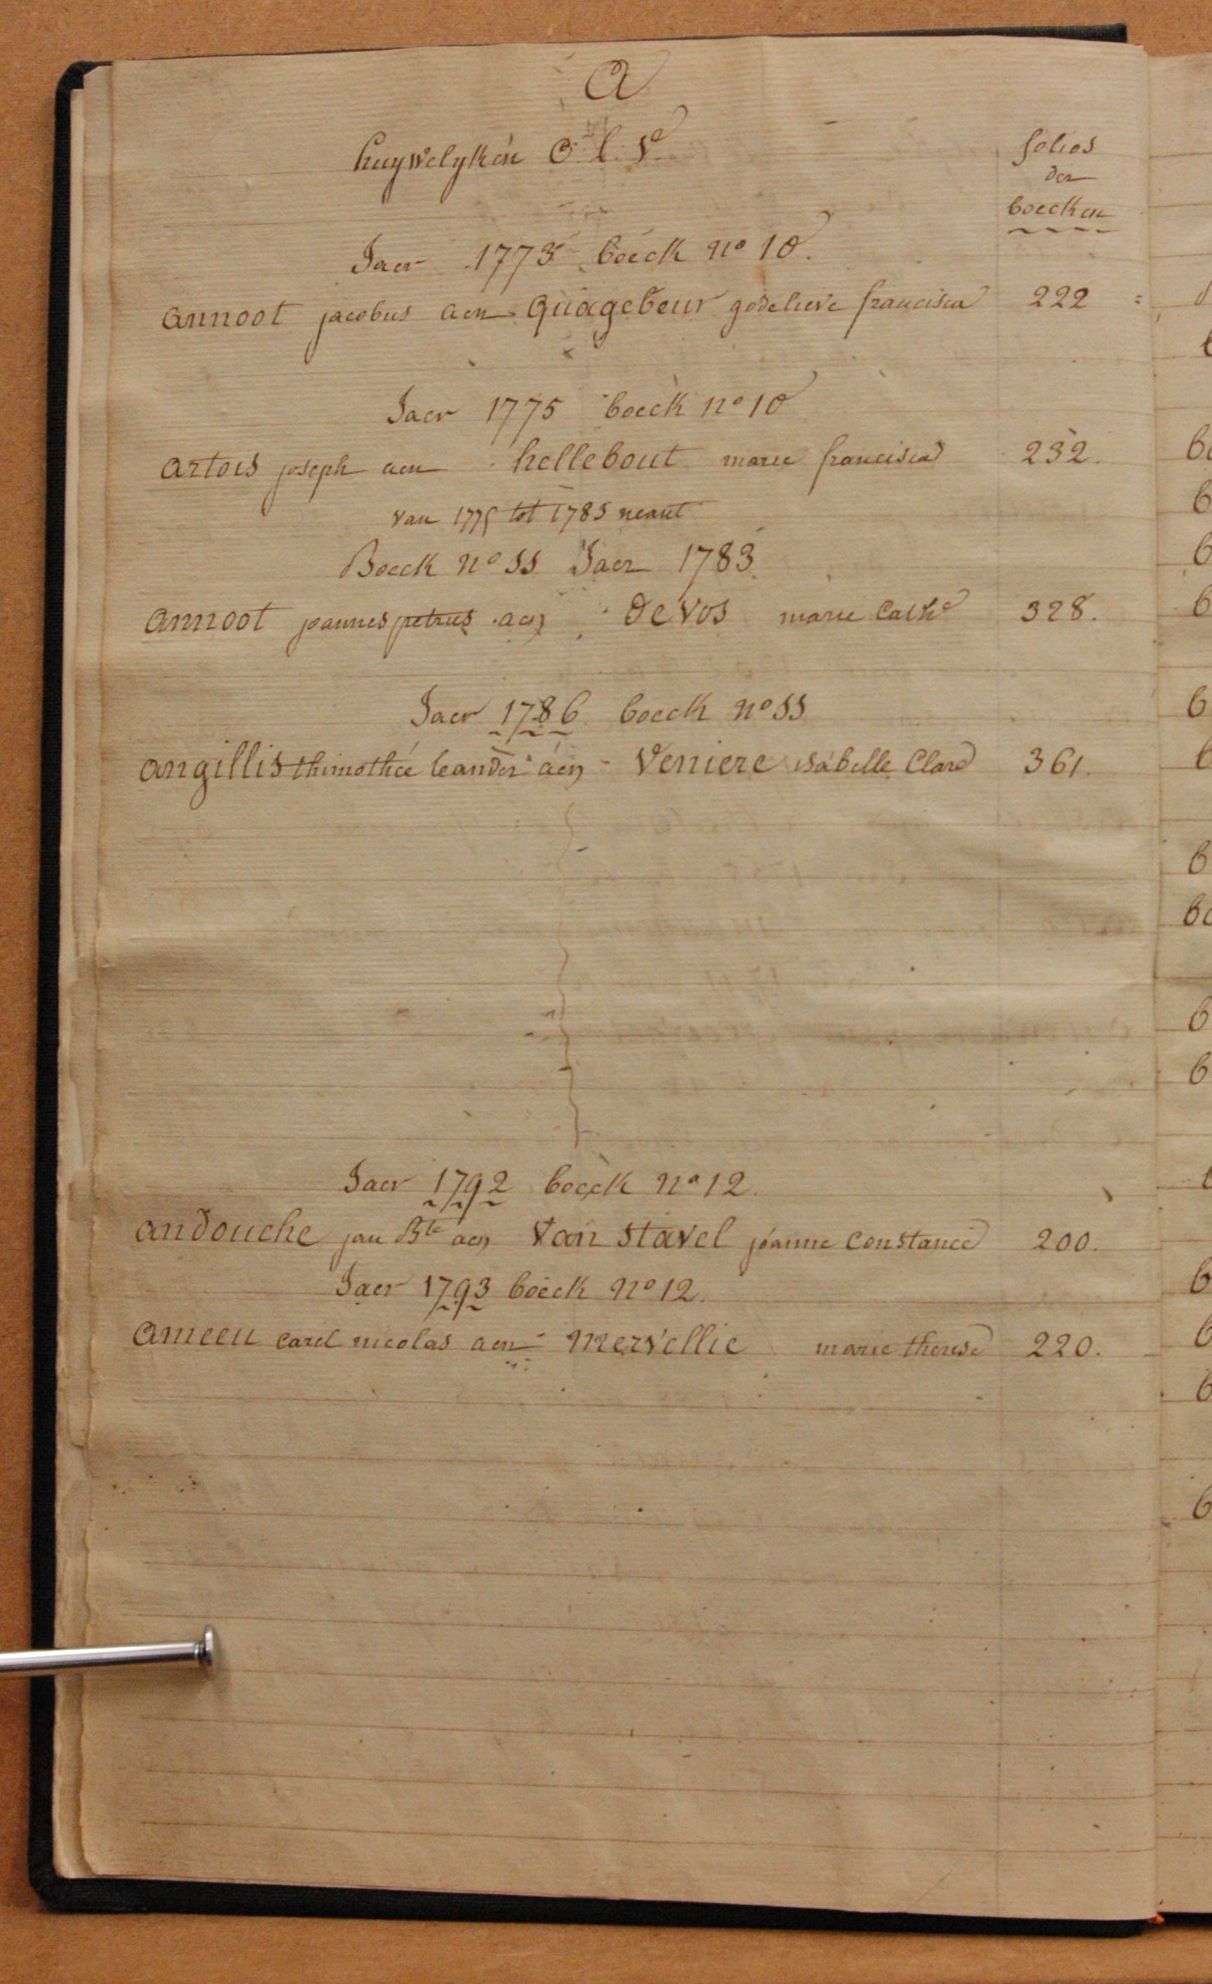 A
huywelyken O. l. Ve
folios
der
boecken
Jaer 1773 boeck no 10.
annoot jacobus aen quagebeur godelieve francisca 222
Jaer 1775 boeck no 10
artois joseph aen hellebout marie francisca 232.
van 1775 tot 1783 neant
Boeck no 11 Jaer 1783
annoot joannes petrus aen de vos marie Cathe 328.
Jaer 1786 boeck no 11
angillis thimothée leander aen veniere isabelle Clare 361.
Jaer 1792 boeck no 12
andouche jan Bte aen van stavel joanne constance 200.
Jaer 1793 boeck no 12.
ameeu carel nicolas aen mervellie marie therese 220.